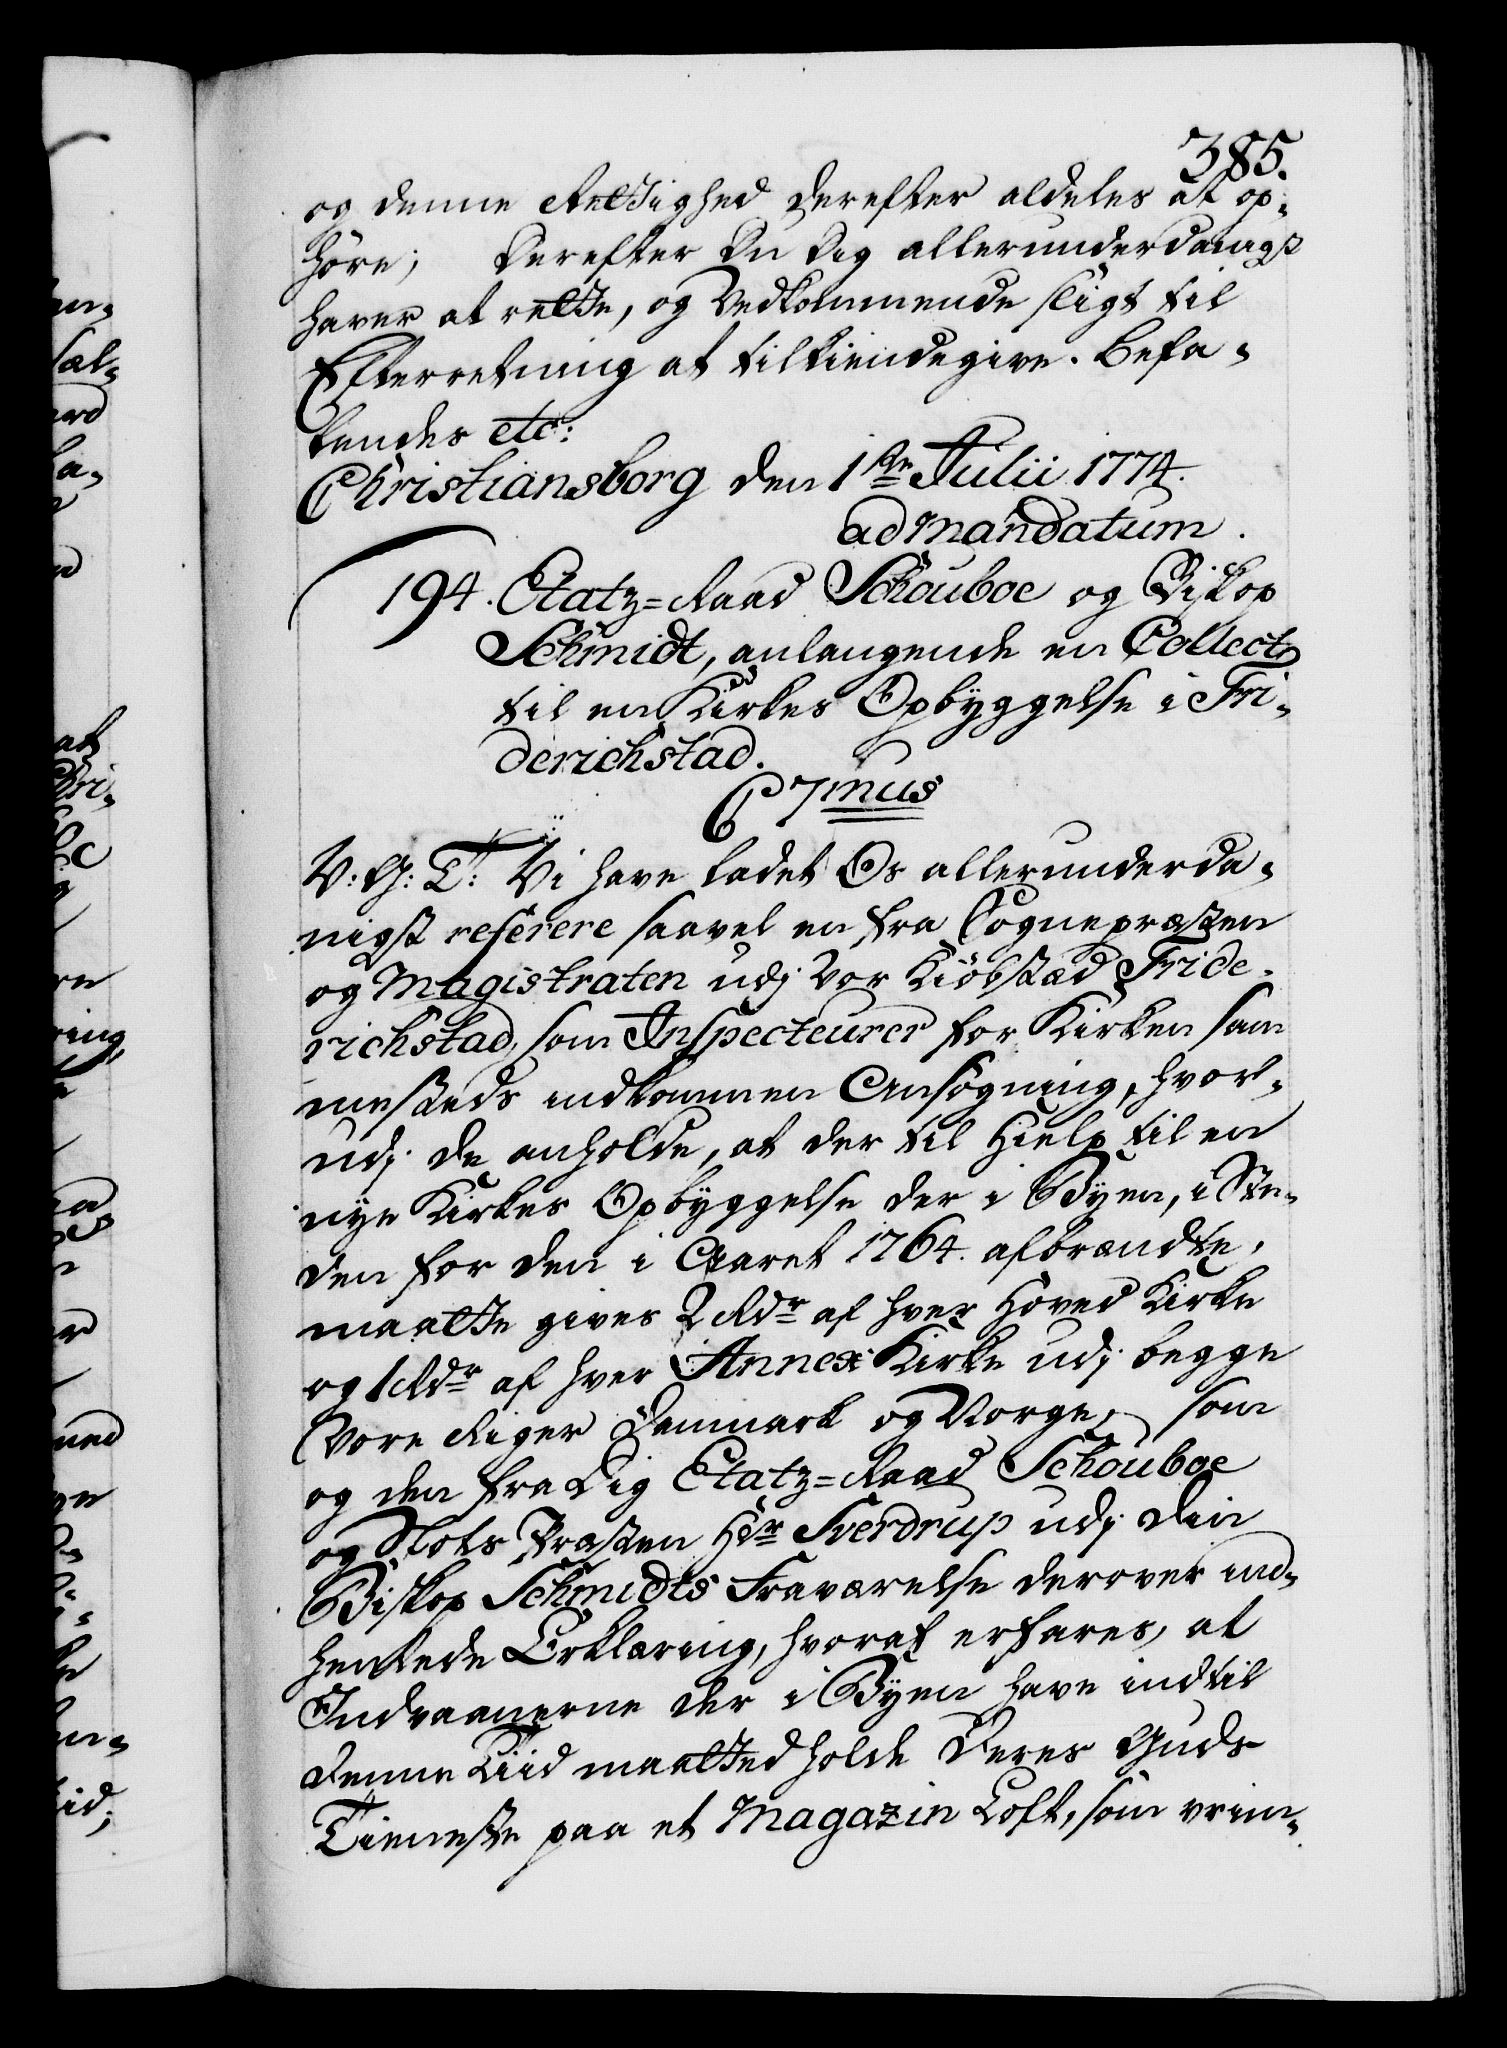 385.
og denne Rettighed derefter aldeles at op-
høre; Derefter Du Dig allerunderdanigst
haver at rette, og Vedkommende sligt til
Efterretning at tilkiendegive. Befa-
lendes etc:
Christiansborg den 1ste Julii 1774.
ad Mandatum.
194. Etatz-Raad Schouboe og Biskop
Schmidt, anlangende en Collect
til en Kirkes Opbyggelse i Fri-
derichstad.
C 7mus
V: G: T: Vi have ladet Os allerunderda-
nigst referere saavel en fra Sognepræsten
og Magistraten udj Vor Kiöbstæd Fride-
richstad, som Inspecteurer for Kirken sam
mesteds indkommen Ansøgning, hvor-
udj de anholde, at der til Hielp til en
nye Kirkes Opbyggelse der i Byen, i Ste-
den for den i Aaret 1764. afbrændte,
maatte gives 2 Rdr af hver Hoved Kirke
og 1 Rdr af hver Annex Kirke udj begge
Vore Riger Danmark og Norge, som
og den fra Dig Etatz-Raad Schouboe
og Slots Præsten Hr Sverdrup udj din
Biskop Schmidts Fraværelse derover ind-
hentede Erklæring, hvoraf erfares, at
Indvaanerne der i Byen have indtil
denne Tiid maatted holde Deres Guds
Tieneste paa et Magazin Loft, som vrim-